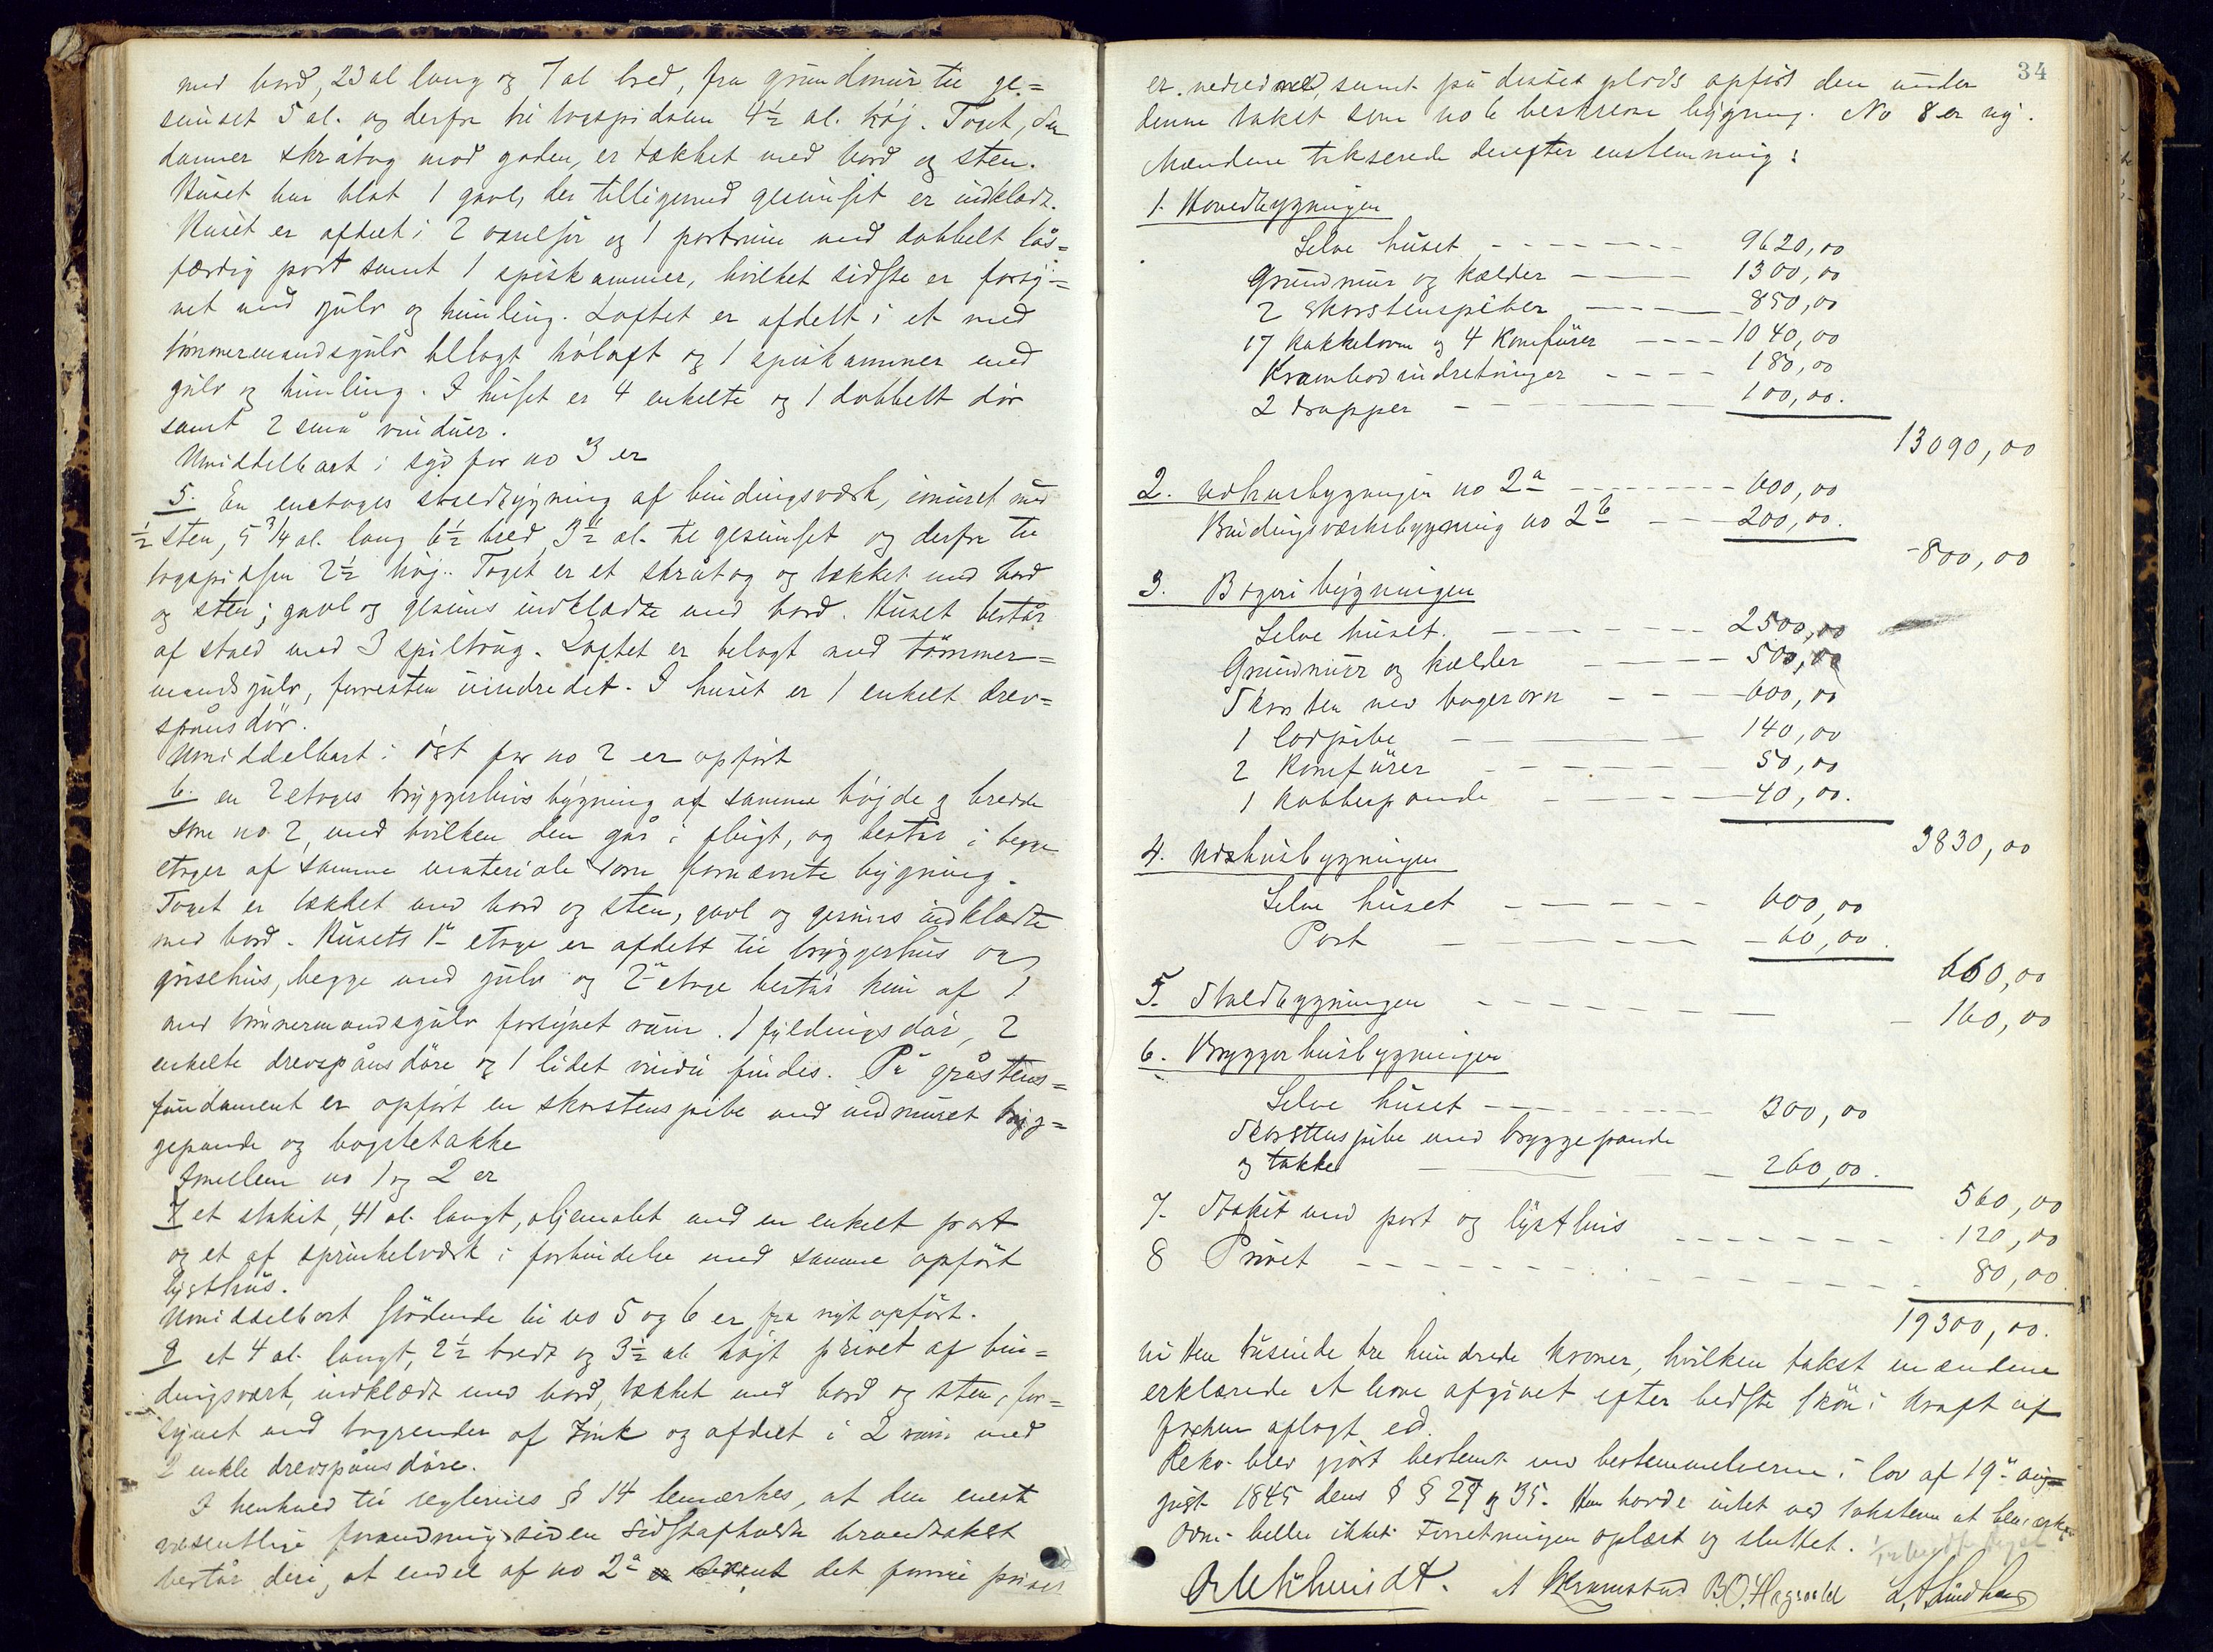 med bord, 23 al lang og 7 al bred, fra grundmur til ge=
simset 5 al. og derfra til tagspidsen 4½ al. høj. Taget, der
danner skråtag mod gaden, er tækket med bord og sten.
Huset har blot 1 gavl, der tilligemed gesimset er indklædt.
Huset er afdelt i 2 værelser og 1 portrum med dobbelt lås=
færdig port samt 1 spiskammer, hvilket sidste er forsy=
net med gulv og himling. Loftet er afdelt i et med
tømmermandsgulv belagt høloft og 1 spiskammer med
gulv og himling. I huset er 4 enkelte og 1 dobbelt dør
samt 2 små vinduer.
Umiddelbart i syd for no 3 er
5. En enetages staldbygning af bindingsværk, imuret med
½ sten, 5¾ al. lang 6½ bred, 3½ al. til gesimset og derfra til
tagspidsen 2½ høj. Taget er et skråtag og tækket med bord
og sten; gavl og gesims indklædte med bord. Huset består
af stald med 3 spiltrug. Loftet er belagt med tømmer=
mandsgulv, forresten uindredet. I huset er 1 enkelt drev=
spånsdør.
Umiddelbart i øst for no 2 er opført
6. en 2 etages bryggerhusbygning af samme højde og bredde
som no 2, med hvilken den går i flugt, og består i begge
etager af samme materiale som fornævnte bygning.
Taget er tækket med bord og sten, gavl og gesims indklædte
med bord. Husets 1ste etage er afdelt til bryggerhus og
grisehus, begge med gulv og 2den etage består kun af 1
med tømmermandsgulv forsynet rum. 1 fyldingsdør, 2
enkelte drevspånsdøre og 1 lidet vindu findes. På gråstens=
fundament er opført en skorstenspibe med indmuret bryg=
gepande og bagstetakke
Imellem no 1 og 2 er
7 et stakit, 41 al. langt, oljemalet med en enkelt port
og et af sprinkelværk i forbindelse med samme opført
lysthus.
Umiddelbart stødende til no 5 og 6 er fra nyt opført.
8 et 4 al. langt, 2½ bredt og 3½ al. højt privet af bin=
dingsverk, indklædt med bord, tækket med bord og sten, for=
synet med tagrender af Zink og afdelt i 2 rum med
2 enkle drevspånsdøre.
I henhold til reglernes § 14 bemærkes, at den eneste
væsentlige forandring siden sidstafholdte brandtakst
består deri, at endel af no 2a det forrige privet
34
er nedrevned, samt på dettes plads opført den under
denne takst som no 6 beskrevne bygning. No 8 er ny.
Mændene takserede derefter enstemmig:
1. Hovedbygningen
Selve huset - - - - - 9620,00
Grundmur og kælder - - - 1300,00
2 skorstenspiber - - - 850,00
17 kakkelovne og 4 Komfürer - - - 1040,00
Krambodindretninger - - - - 180,00
2 trapper - - - 100,00.
13090,00
2. Udhusbygningen no 2a - - - - - 600,00
Bindingsværksbygning no 2b - - - 200,00.
- 800,00
3. Bageribygningen
Selve huset. - - - - - 2500,00
Grundmur og kælder - - - - 500,00
Skorsten med bagerovn - - - 600,00
1 lodpibe - - - 140,00
2 Komfürer - - - - 50,00
1 kobberpande - - - - 40,00.
3830,00
4. Udhusbygningen
Selve huset - - - - - 600,00
Port - - - - - 60,00.
660,00
5. Staldbygningen - - - - - - - 160,00
6. Bryggerhusbygningen
Selve huset - - - - - 300,00
Skorstenspibe med bryggepande
og takke - - - 260,00.
560,00
7. Stakit med port og lysthus - - - - - - - 120,00
8 Privet - - - - - - - - - - 80,00
19300,00.
nitten tusinde tre hundrede kroner, hvilken takst mændene
erklærede at have afgivet efter bedste skøn i kraft af
forhen aflagt ed.
Rekv. blev gjort bekjent med bestemmelserne i lov af 19de aug=
gust 1845 dens § § 27 og 35. Han havde intet ved taksten at bemærke
Adm. heller ikke. Forretningen oplæst og sluttet.
A Kramstad B.O. Hagevold